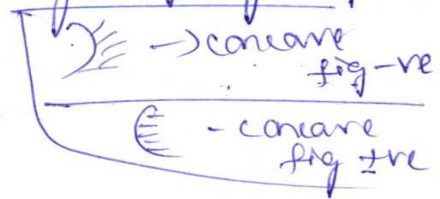 → concave
fig -ve
- concave
fig +ve